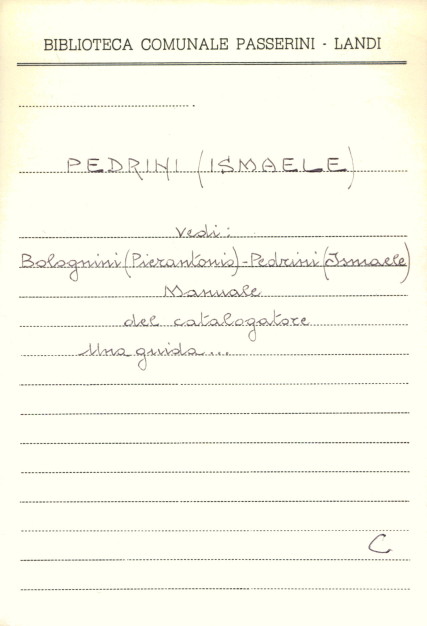 BIBLIOTECA COMUNALE PASSERINI - LANDI
PEDRINI (ISMAELE)
Vedi:
Bolognini (Pierantonio) - Pedrini (Ismaele)
Manuale
del catalogatore
Una guida...
C